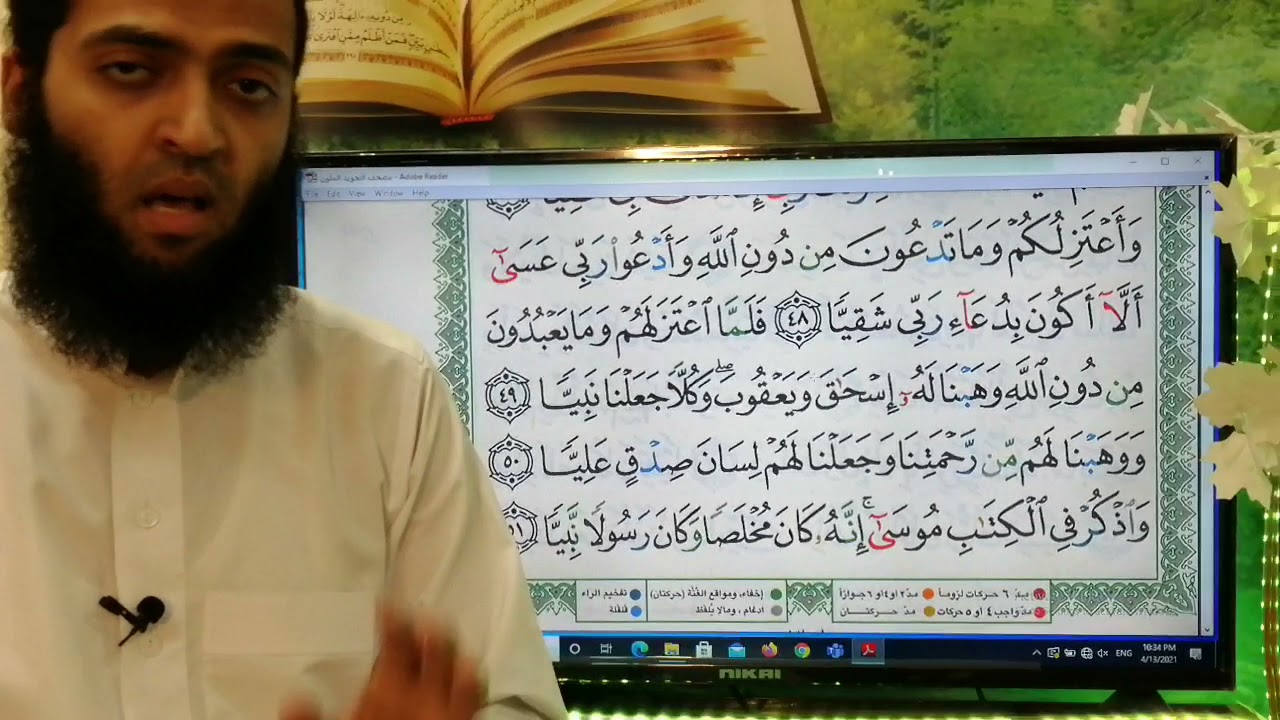 مصحف التجويد الملون - Adobe Reader
File Edit View Window Help
وَأَعْتَزِلُكُمْ وَمَا تَدْعُونَ مِن دُونِ ٱللَّهِ وَأَدْعُوا۟ رَبِّى عَسَىٰٓ
أَلَّآ أَكُونَ بِدُعَآءِ رَبِّى شَقِيًّا ٤٨ فَلَمَّا ٱعْتَزَلَهُمْ وَمَا يَعْبُدُونَ
مِن دُونِ ٱللَّهِ وَهَبْنَا لَهُۥٓ إِسْحَٰقَ وَيَعْقُوبَ ۖ وَكُلًّا جَعَلْنَا نَبِيًّا ٤٩
وَوَهَبْنَا لَهُم مِّن رَّحْمَتِنَا وَجَعَلْنَا لَهُمْ لِسَانَ صِدْقٍ عَلِيًّا ٥٠
وَٱذْكُرْ فِى ٱلْكِتَٰبِ مُوسَىٰٓ ۚ إِنَّهُۥ كَانَ مُخْلَصًا وَكَانَ رَسُولًا نَّبِيًّا
مدّ ٦ حركات لزوماً مدّ ٢ او ٤ او ٦ جوازاً إخفاء، ومواقع الغنّة (حركتان) تفخيم الراء
مدّ واجب ٤ او ٥ حركات مدّ حركتان ادغام ، ومالا يُلفظ قلقلة
ENG
10:34 PM
4/13/2021
NIKAI